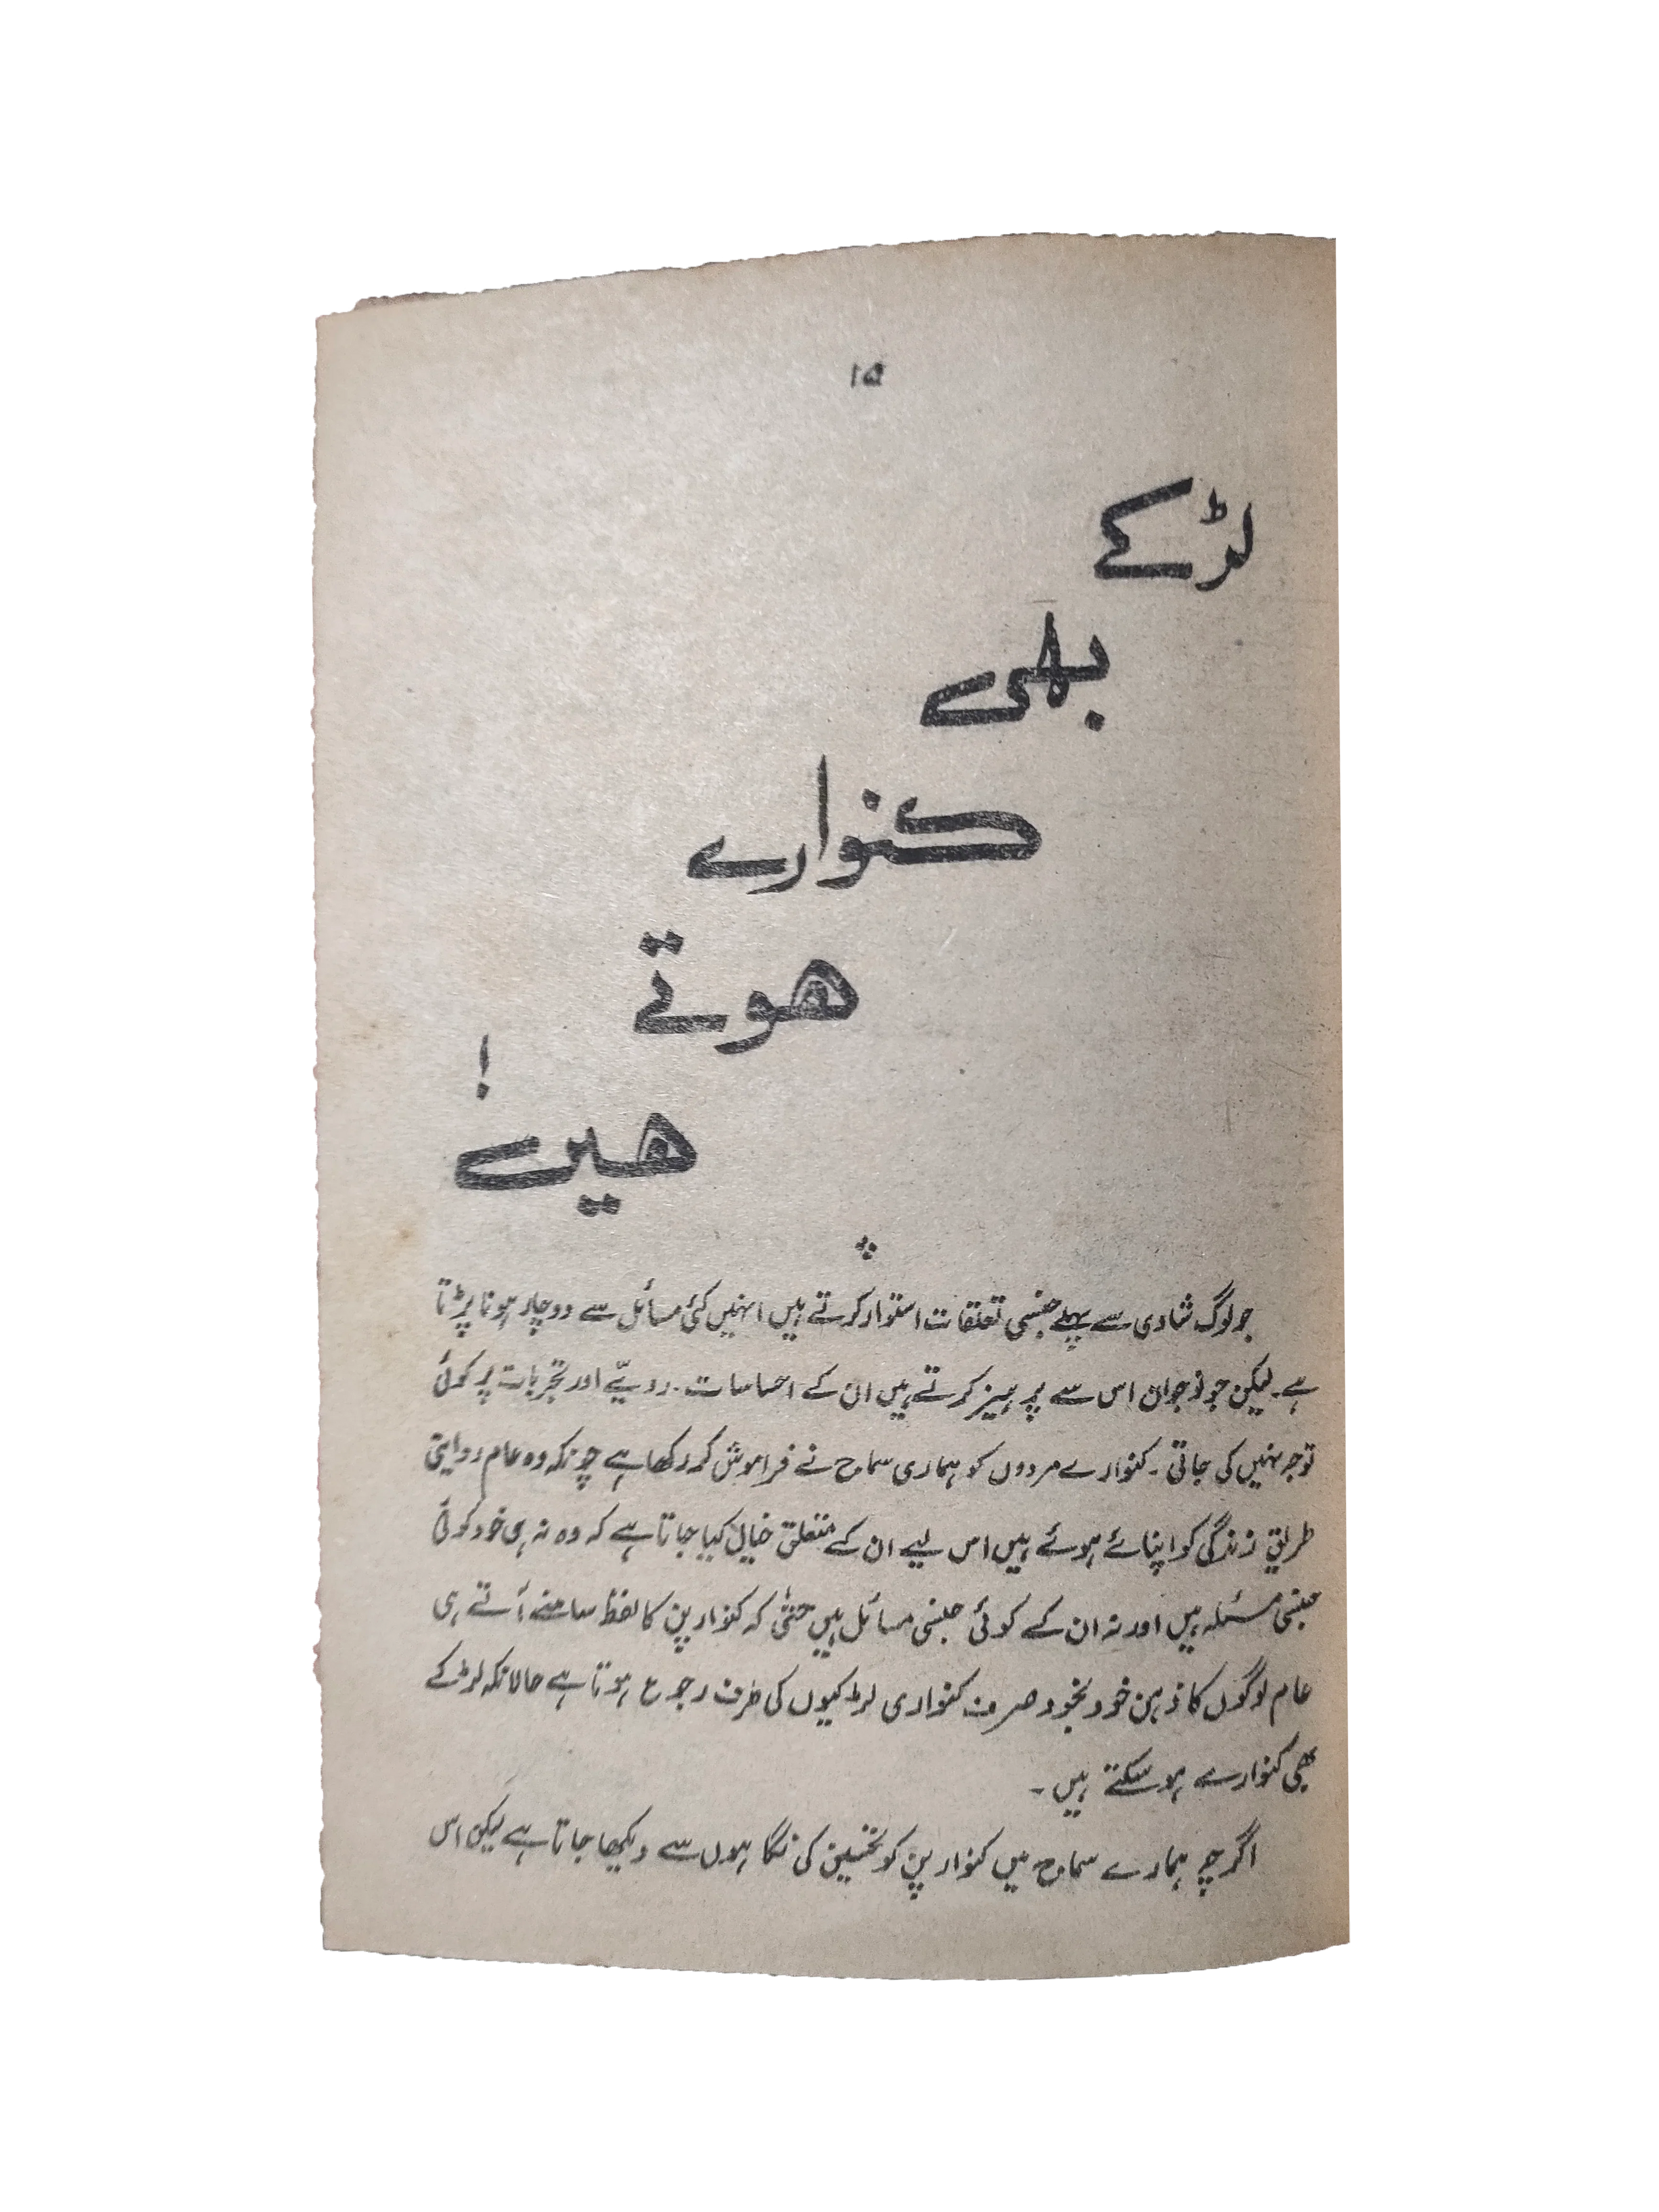 ۱۵
لڑکے
بھی
کنوارے
ھوتے
ھیں !
جو لوگ شادی سے پہلے جنسی تعلقات استوار کرتے ہیں انہیں کئی مسائل سے دوچار ہونا پڑتا
ہے۔ لیکن جو نوجوان اس سے پرہیز کرتے ہیں ان کے احساسات۔ رویّے اور تجربات پر کوئی
توجہ نہیں کی جاتی۔ کنوارے مردوں کو ہماری سماج نے فراموش کر رکھا ہے چونکہ وہ عام روایتی
طریقِ زندگی کو اپنائے ہوئے ہیں اس لیے ان کے متعلق خیال کیا جاتا ہے کہ وہ نہ ہی خود کوئی
جنسی مسئلہ ہیں اور نہ ان کے کوئی جنسی مسائل ہیں حتیٰ کہ کنوارپن کا لفظ سامنے آتے ہی
عام لوگوں کا ذہن خودبخود صرف کنواری لڑکیوں کی طرف رجوع ہوتا ہے حالانکہ لڑکے
بھی کنوارے ہو سکتے ہیں۔
اگرچہ ہمارے سماج میں کنوارپن کو تحسین کی نگاہوں سے دیکھا جاتا ہے لیکن اس